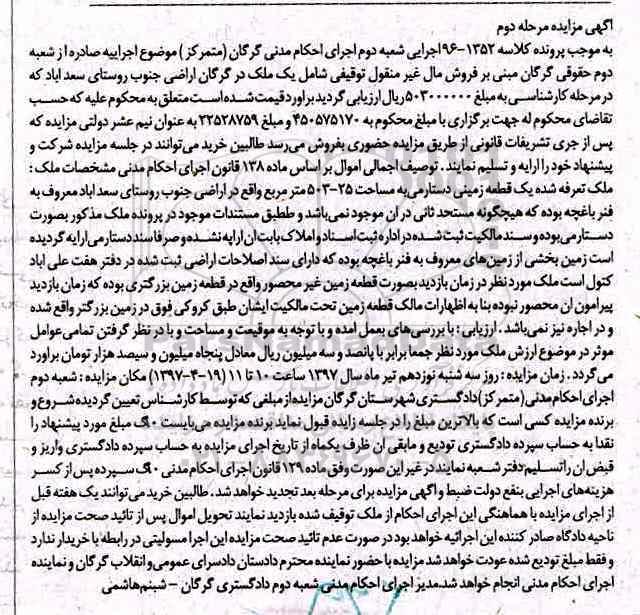 آگهی مزایده مرحله دوم
به موجب پرونده کلاسه ۱۳۵۲-۹۶اجرایی شعبه دوم اجرای احکام مدنی گرگان (متمرکز ) موضوع اجراییه صادره از شعبه
دوم حقوقی گرگان مبنی بر فروش مال غیر منقول توقیفی شامل یک ملک در گرگان اراضی جنوب روستای سعد اباد که
در مرحله کارشناسی به مبلغ ۵۰۳۰۰۰۰۰۰ریال ارزیابی گردید براورد قیمت شده است متعلق به محکوم علیه که حسب
تقاضای محکوم له جهت برگزاری با مبلغ محکوم به ۴۵۰۵۷۵۱۷۰ و مبلغ ۲۲۵۲۸۷۵۹ به عنوان نیم عشر دولتی مزایده که
پس از جری تشریفات قانونی از طریق مزایده حضوری بفروش می‌رسد طالبین خرید می‌توانند در جلسه مزایده شرکت و
پیشنهاد خود را ارایه و تسلیم نمایند . توصیف اجمالی اموال بر اساس ماده ۱۳۸ قانون اجرای احکام مدنی مشخصات ملک :
ملک تعرفه شده یک قطعه زمینی دستارمی‌به مساحت ۲۵-۵۰۳ متر مربع واقع در اراضی جنوب روستای سعد اباد معروف به
فنر باغچه بوده که هیچگونه مستحد ثانی در ان موجود نمی‌باشد و طظبق مستندات موجود در پرونده ملک مذکور بصورت
دستارمی‌بوده و سند مالکیت ثبت شده در اداره ثبت اسناد و املاک بابت ان ارایه نشده و صرفا سند دستارمی‌ارایه گردیده
است زمین بخشی از زمین‌های معروف به فنر باغچه بوده که دارای سند اصلاحات اراضی ثبت شده در دفتر هفت علی اباد
کتول است ملک مورد نظر در زمان بازدید بصورت قطعه زمین غیر محصور واقع در قطعه زمین بزرگتری بوده که زمان بازدید
پیرامون ان محصور نبوده بنا به اظهارات مالک قطعه زمین تحت مالکیت ایشان طبق کروکی فوق در زمین بزرگتر واقع شده
و در اجاره نیز نمی‌باشد . ارزیابی : با بررسی‌های بعمل امده و با توجه به موقعیت و مساحت و با در نظر گرفتن تمامی‌عوامل
موثر در موضوع ارزش ملک مورد نظر جمعا برابر با پانصد و سه میلیون ریال معادل پنجاه میلیون و سیصد هزار تومان براورد
می‌گردد . زمان مزایده : روز سه شنبه نوزدهم تیر ماه سال ۱۳۹۷ ساعت ۱۰ تا ۱۱ (۱۹-۴-۱۳۹۷) مکان مزایده : شعبه دوم
اجرای احکام مدنی (متمرکز ) دادگستری شهرستان گرگان مزایده از مبلغی که توسط کارشناس تعیین گردیده شروع و
برنده مزایده کسی است که بالاترین مبلغ را در جلسه زایده قبول نماید برنده مزایده می‌بایست ۱۰% مبلغ مورد پیشنهاد را
نقدا به حساب سپرده دادگستری تودیع و مابقی ان ظرف یکماه از تاریخ اجرای مزایده به حساب سپرده دادگستری واریز و
قبض ان راتسلیم دفتر شعبه نمایند در غیر این صورت وفق ماده ۱۲۹ قانون اجرای احکام مدنی ۱۰% سپرده پس از کسر
هزینه‌های اجرایی بنفع دولت ضبط و آگهی مزایده برای مرحله بعد تجدید خواهد شد . طالبین خرید می‌توانند یک هفته قبل
از اجرای مزایده با هماهنگی این اجرای احکام از ملک توقیف شده بازدید نمایند تحویل اموال پس از تائید صحت مزایده از
ناحیه دادگاه صادر کننده این اجرائیه خواهد بود در صورت عدم تائید صحت مزایده این اجرا مسولیتی در رابطه با خریدار ندارد
و فقط مبلغ تودیع شده عودت خواهد شد مزایده با حضور نماینده محترم دادستان دادسرای عمومی‌وانقلاب گرگان و نماینده
اجرای احکام مدنی انجام خواهد شد.مدیر اجرای احکام مدنی شعبه دوم دادگستری گرگان – شبنم‌هاشمی